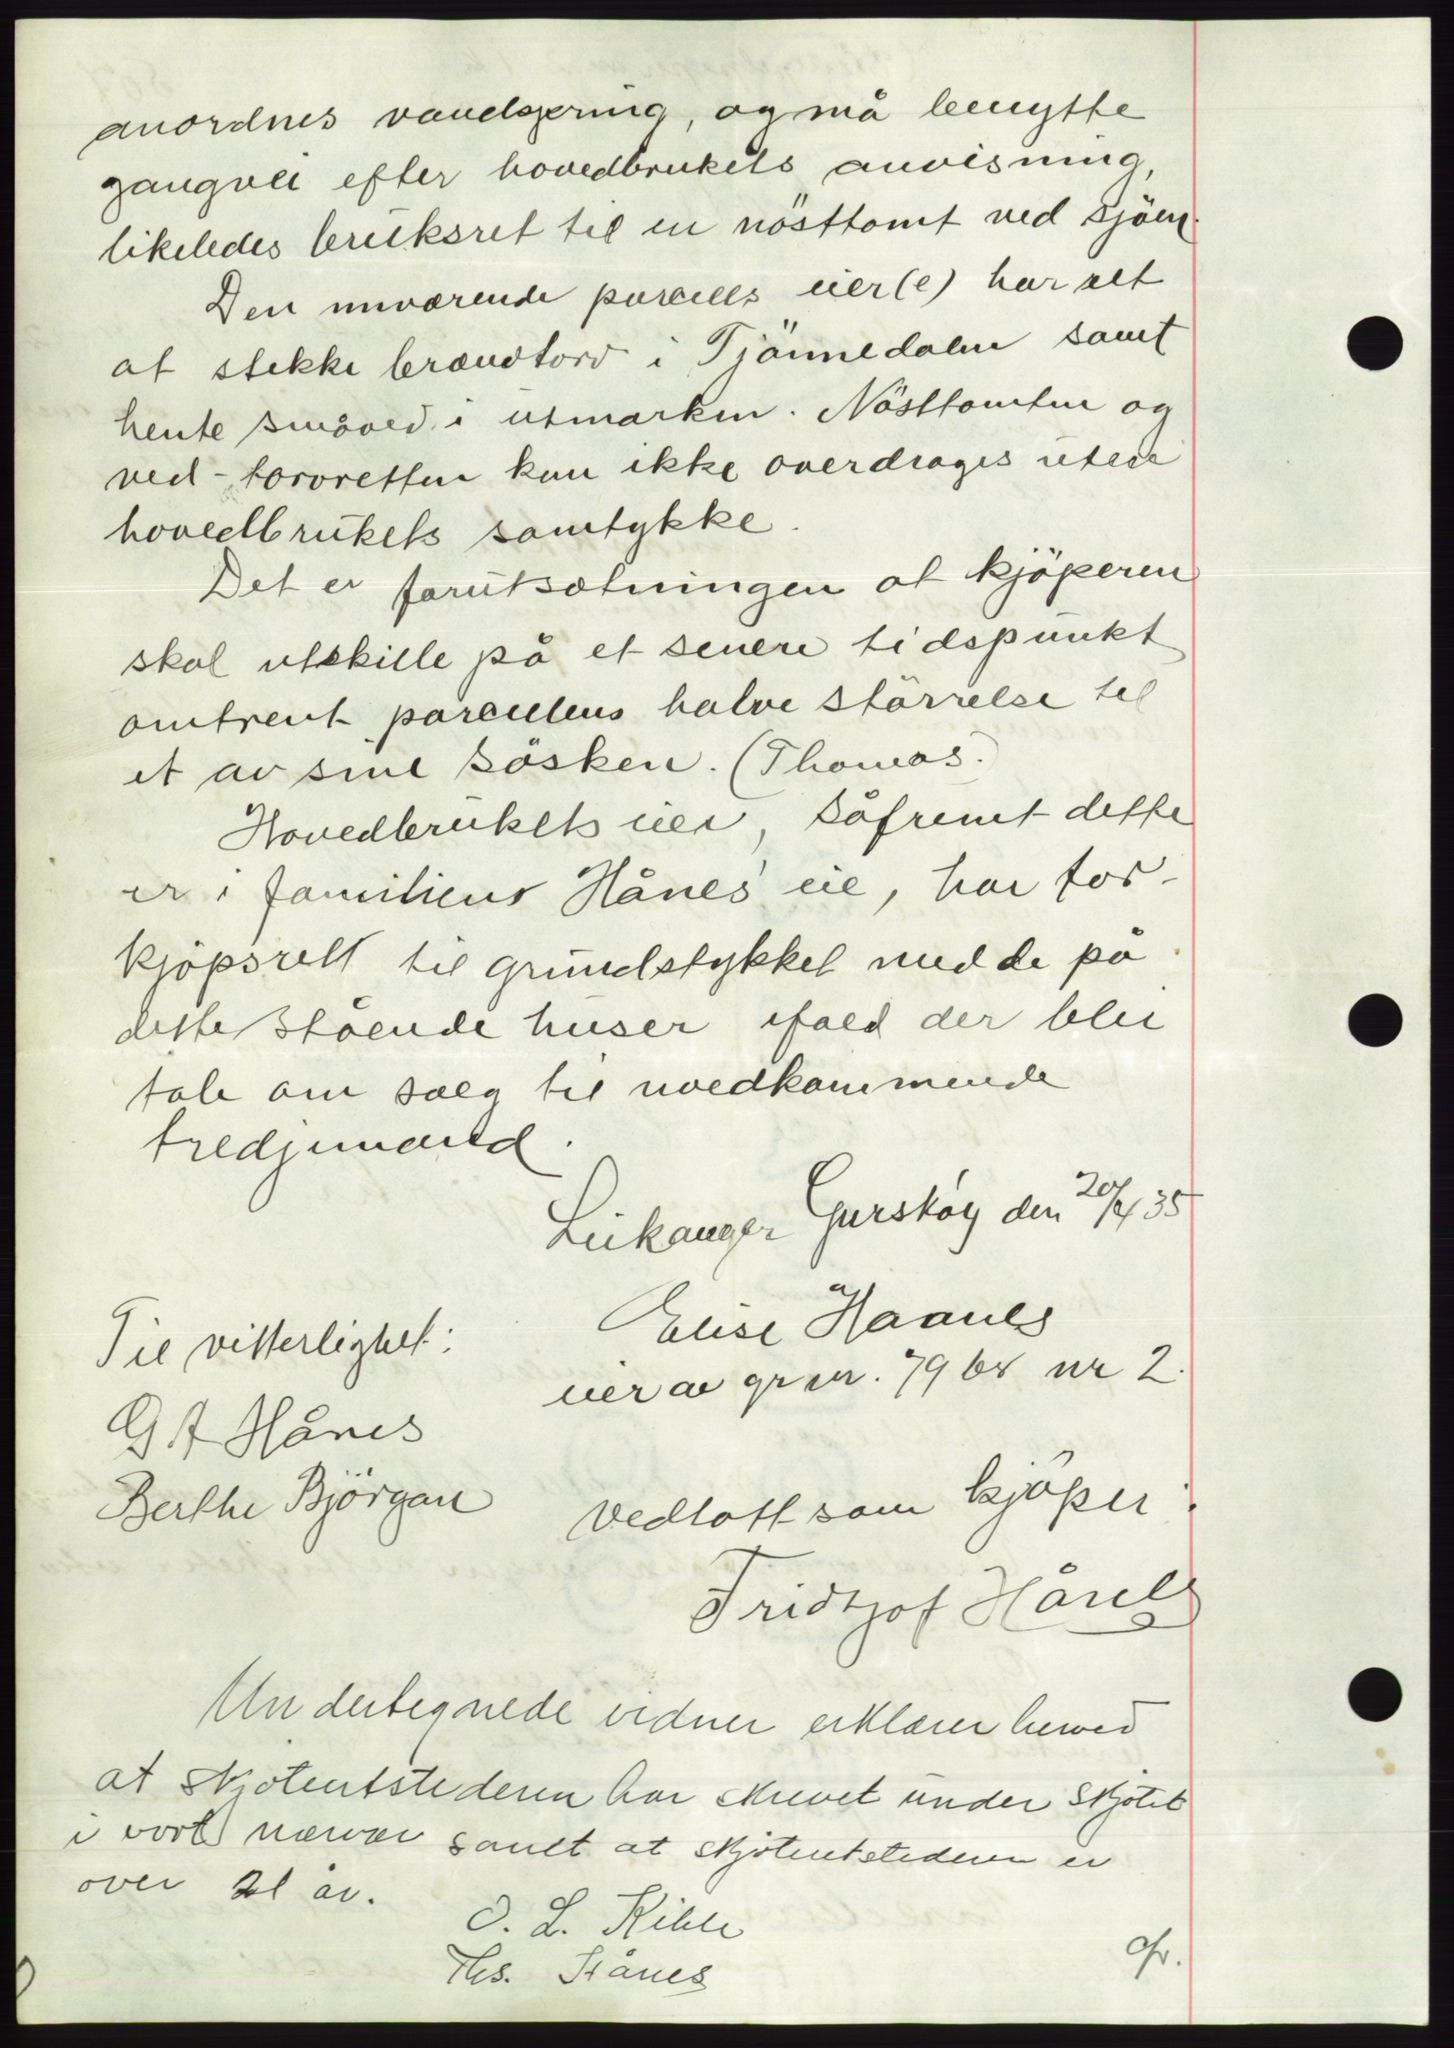 anordnes vandgjering, og må benytte
gangvei efter hovedbrukets anvisning,
likeledes bruksret til en nösttomt ved sjöen.
Den nuværende parcells eier(e) har ret
at stikke brændtorv i Tjönnedalen samt
hente småved i utmarken. Nösttomten og
ved-torvretten kan ikke overdrages uten
hovedbrukets samtykke.
Det er forutsætningen at kjöperen
skal utskille på et senere tidspunkt
omtrent parcellens halve störrelse til
et av sine sösken. (Thomas.)
Hovedbrukets eier, såfremt dette
er i familiens Hånes' eie, har for-
kjöpsrett til grundstykket med de på
dette stående huser ifald der blir
tale om salg til uvedkommende
tredjemand.
Leikanger Gurskøy den 20/4 35
Elise Haanes
eier av gr nr. 79 br nr 2.
Til vitterlighet:
G A Hånes
Berthe Björgan
Vedtatt som kjöper.
Fridtjof Hånes
Undertegnede vidner erklærer herved
at skjøteutstederen har skrevet under skjøtet
i vort nærvær samt at skjøteutstederen er
over 21 år.
O. L. Kihle
Ths. Hånes